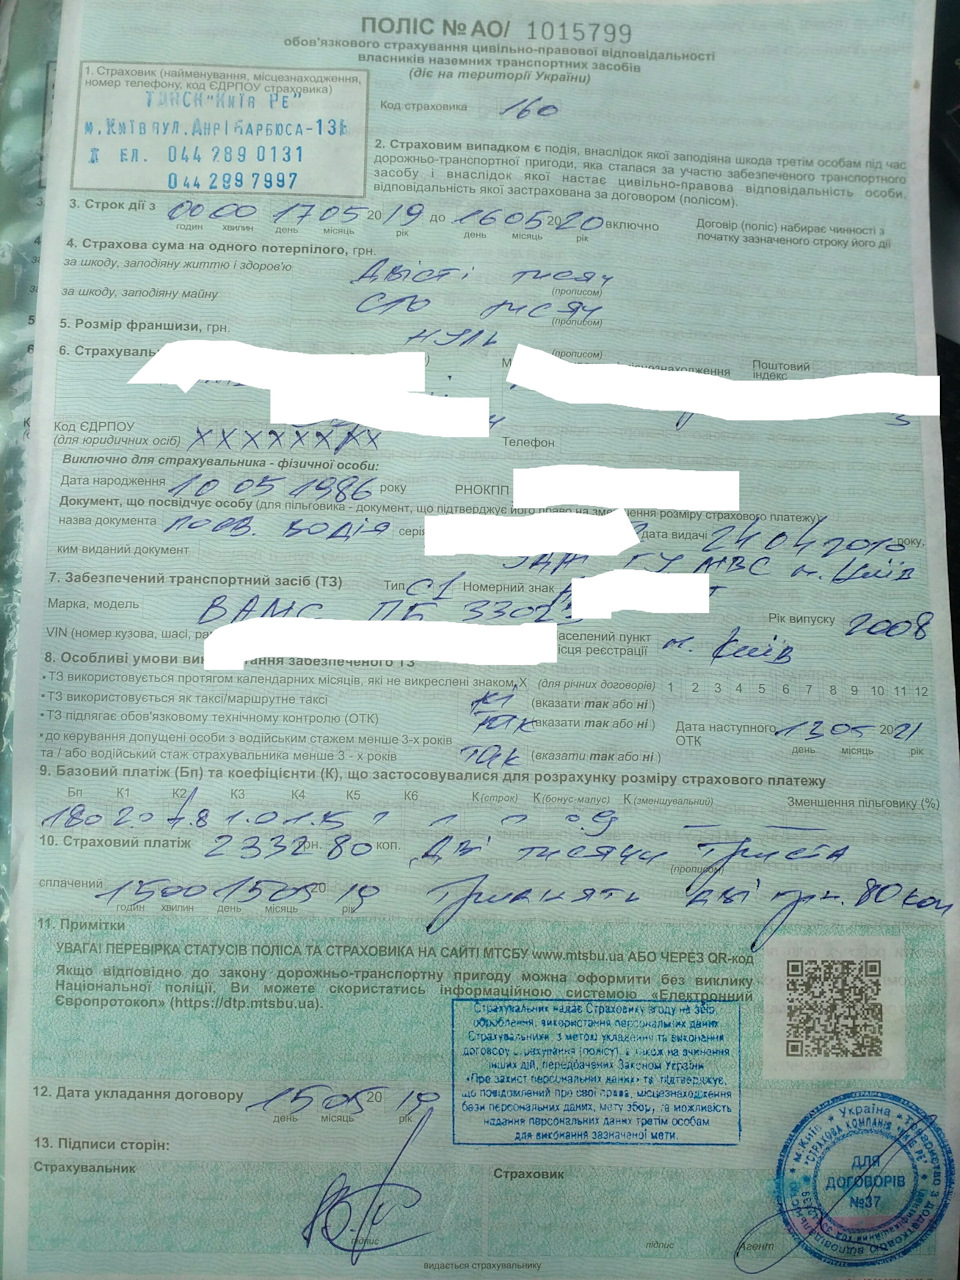 ПОЛІС № АО/ 1015799
обов'язкового страхування цивільно-правової відповідальності
власників наземних транспортних засобів
(діє на території України)
1. Страховик (найменування, місцезнаходження,
номер телефону, код ЄДРПОУ страховика)
ТДВСК "КИЇВ РЕ"
м. КИЇВ ВУЛ. АНРІ БАРБЮСА-13Б
ТЕЛ. 044 289 0131
044 289 7997
Код страховика 160
2. Страховим випадком є подія, внаслідок якої заподіяна шкода третім особам під час
дорожньо-транспортної пригоди, яка сталася за участю забезпеченого транспортного
засобу і внаслідок якої настає цивільно-правова відповідальність особи,
відповідальність якої застрахована за договором (полісом).
3. Строк дії з 00 00 17 05 2019 до 16 05 2020 включно
годин хвилин день місяць рік день місяць рік
Договір (поліс) набирає чинності з
початку зазначеного строку його дії
4. Страхова сума на одного потерпілого, грн.
за шкоду, заподіяну життю і здоров'ю Двісті тисяч
(прописом)
за шкоду, заподіяну майну сто тисяч
(прописом)
5. Розмір франшизи, грн. нуль
(прописом)
6. Страхуваль
Поштовий
індекс
Код ЄДРПОУ
(для юридичних осіб) XXXXXXXX
Телефон
Виключно для страхувальника - фізичної особи:
Дата народження 10 05 1986 року РНОКПП
Документ, що посвідчує особу (для пільговика - документ, що підтверджує його право на зменшення розміру страхового платежу)
назва документа посв. водія серія дата видачі 24 04 2010 року,
ким виданий документ УДАІ ГУ МВС м. Київ
7. Забезпечений транспортний засіб (ТЗ) Тип С1 Номерний знак
Марка, модель ВАМС ПБ 33023 Рік випуску 2008
VIN (номер кузова, шасі, ра аселений пункт
ісця реєстрації м. Київ
8. Особливі умови вик тання забезпеченого ТЗ
• ТЗ використовується протягом календарних місяців, які не викреслені знаком X (для річних договорів) 1 2 3 4 5 6 7 8 9 10 11 12
• ТЗ використовується як таксі/маршрутне таксі ні (вказати так або ні)
• ТЗ підлягає обов'язковому технічному контролю (ОТК) так (вказати так або ні) Дата наступного ОТК 13 05 2021
день місяць рік
• до керування допущені особи з водійським стажем менше 3-х років
та / або водійський стаж страхувальника менше 3 - х років так (вказати так або ні)
9. Базовий платіж (Бп) та коефіцієнти (К), що застосовувалися для розрахунку розміру страхового платежу
Бп К1 К2 К3 К4 К5 К6 К (строк) К (бонус-малус) К (зменшувальний) Зменшення пільговику (%)
180 2.0 4.8 1.0 1.5
10. Страховий платіж 2332 грн. 80 коп. Дві тисячі триста
(прописом)
сплачений 15 00 15 05 2019 тридцять дві грн. 80 коп
годин хвилин день місяць рік
11. Примітки
УВАГА! ПЕРЕВІРКА СТАТУСІВ ПОЛІСА ТА СТРАХОВИКА НА САЙТІ МТСБУ www.mtsbu.ua АБО ЧЕРЕЗ QR-код
Якщо відповідно до закону дорожньо-транспортну пригоду можна оформити без виклику
Національної поліції, Ви можете скористатись інформаційною системою «Електронний
Європротокол» (https://dtp.mtsbu.ua).
Страхувальник надає Страховику згоду на збір,
оброблення, використання персональних даних
Страхувальника, з метою укладення та виконання
договору страхування (полісу), а також на вчинення
інших дій, передбачених Законом України
«Про захист персональних даних» та підтверджує,
що повідомлений про свої права, місцезнаходження
бази персональних даних, мету збору, та можливість
надання персональних даних третім особам
для виконання зазначеної мети.
12. Дата укладання договору 15 05 2019
день місяць рік
13. Підписи сторін:
Страхувальник
Страховик
підпис
підпис
Агент
видається страхувальнику
Україна
м. Київ
СТРАХОВА КОМПАНІЯ "КИЇВ РЕ"
Товариство з додатковою відповідальністю
ДЛЯ
ДОГОВОРІВ
№37